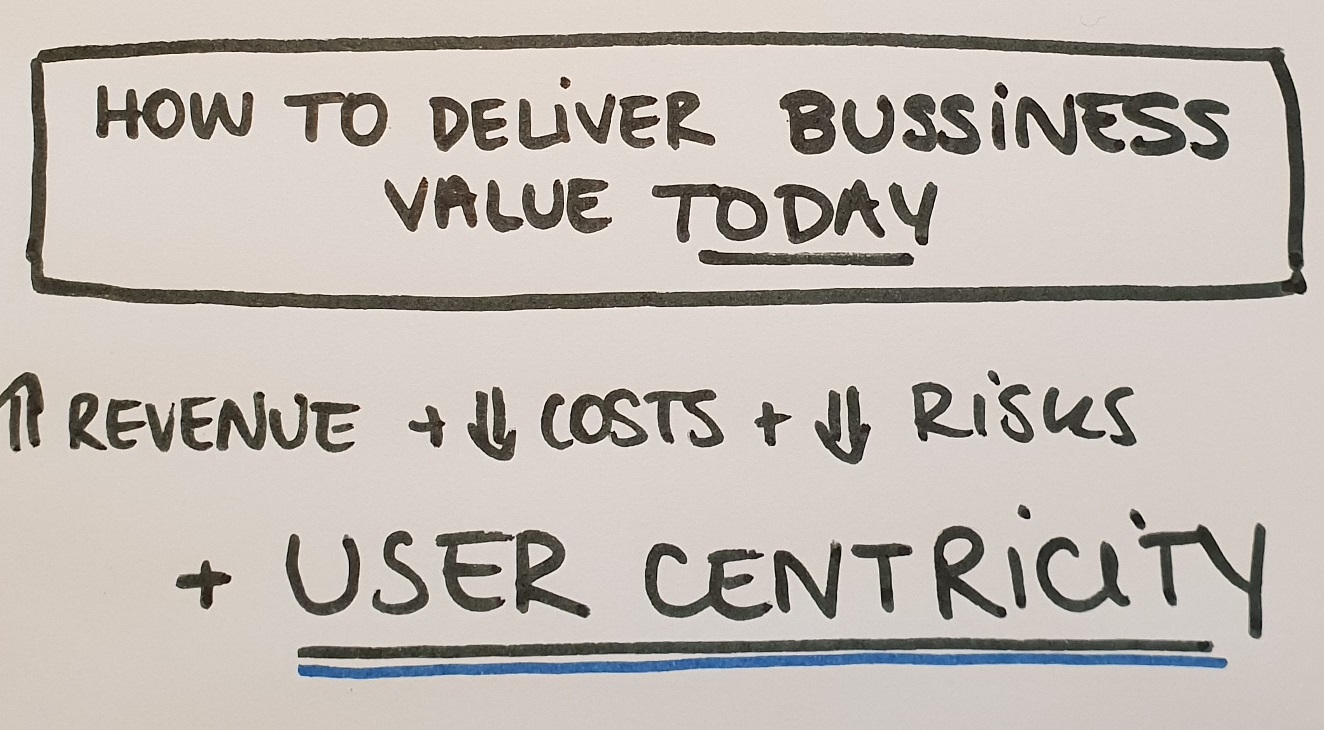 HOW TO DELiVER BUSSiNESS
VALUE TODAY
⇑ REVENUE + ⇓ COSTS + ⇓ RiSKS
+ USER CENTRiCiTY